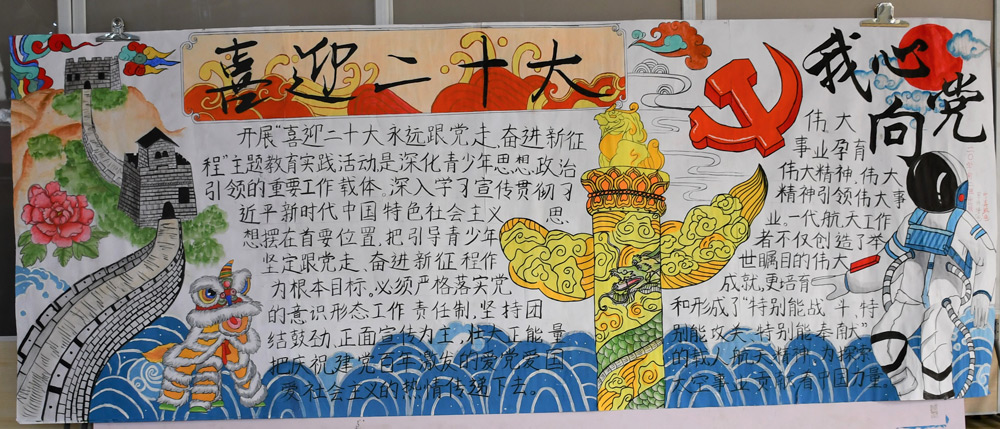 喜迎二十大
开展"喜迎二十大永远跟党走,奋进新征
程"主题教育实践活动是深化青少年思想政治
引领的重要工作载体。深入学习宣传贯彻习
近平新时代中国特色社会主义 思
想摆在首要位置,把引导青少年
坚定跟党走、奋进新征程作
为根本目标。必须严格落实党
的意识形态工作责任制,坚持团
结鼓劲,正面宣传为主,壮大正能量
把庆祝建党百年激发的爱党爱国
爱社会主义的热情传递下去。
我心向党
伟大
事业孕育
伟大精神,伟大
精神引领伟大事
业。一代航天工作
者不仅创造了举
世瞩目的伟大
成就,更培育
和形成了"特别能战斗、特
别能攻关、特别能奉献"
的载人航天精神,为探索
太空事业贡献着中国力量。